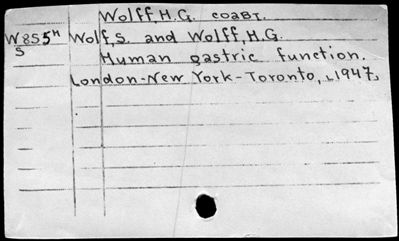 Wolff, H.G. соавт.
W855н Wolf, S. and Wolff, H.G.
S Human gastric function.
London-New York-Toronto, [1947]